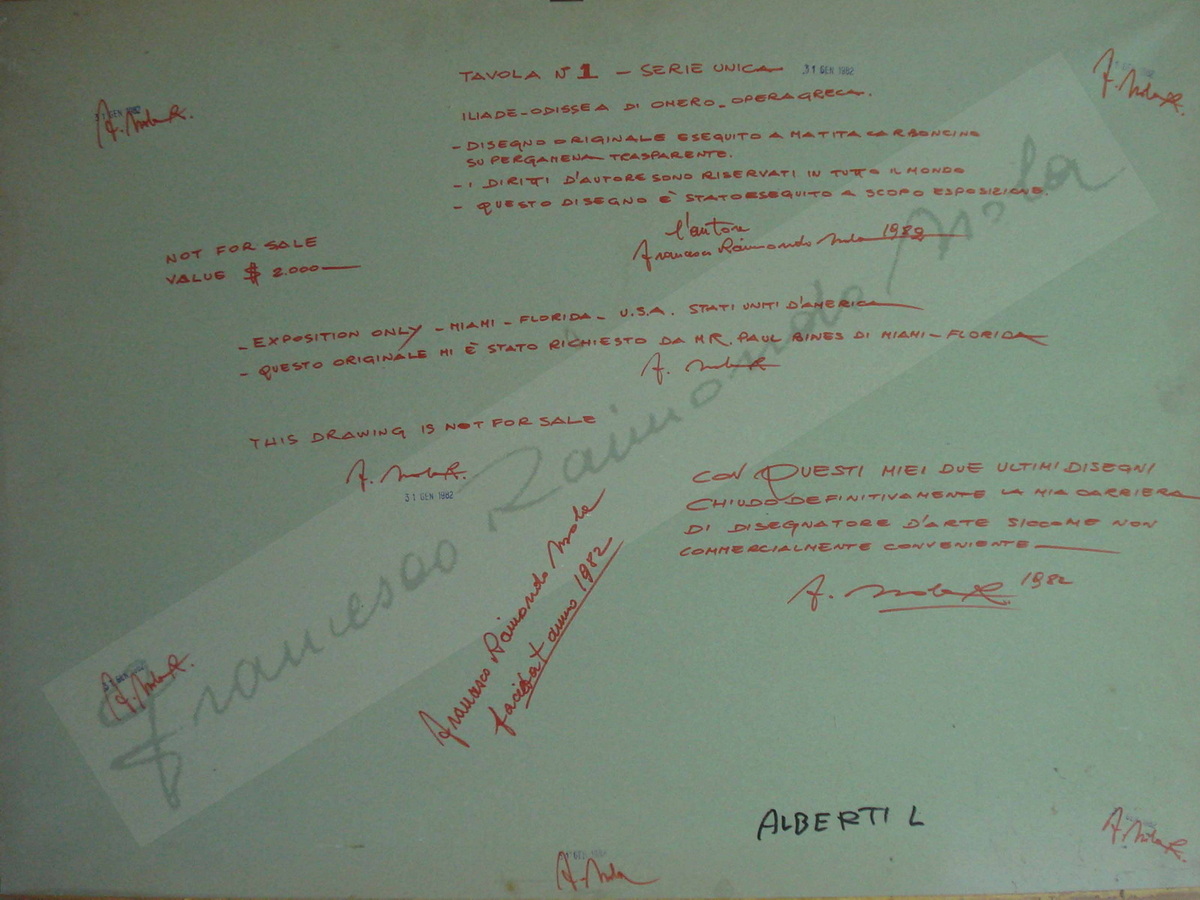 TAVOLA N 1 - SERIE UNICA 31 GEN 1982
31 GEN 1982
F. Mola R.
F. Mola R.
ILIADE-ODISSEA DI OMERO-OPERA GRECA.
- DISEGNO ORIGINALE ESEGUITO A MATITA CARBONCINO
SU PERGAMENA TRASPARENTE.
- I DIRITTI D'AUTORE SONO RISERVATI IN TUTTO IL MONDO
- QUESTO DISEGNO È STATO ESEGUITO A SCOPO ESPOSIZIONE.
l'autore
Francesco Raimondo Mola 1982
NOT FOR SALE
VALUE $ 2.000
- EXPOSITION ONLY - MIAMI - FLORIDA - U.S.A. STATI UNITI D'AMERICA
- QUESTO ORIGINALE MI È STATO RICHIESTO DA MR. PAUL BINES DI MIAMI - FLORIDA
F. Mola R.
THIS DRAWING IS NOT FOR SALE
F. Mola R.
31 GEN 1982
CON QUESTI MIEI DUE ULTIMI DISEGNI
CHIUDO DEFINITIVAMENTE LA MIA CARRIERA
DI DISEGNATORE D'ARTE SICCOME NON
COMMERCIALMENTE CONVENIENTE
F. Mola R. 1982
Francesco Raimondo Mola
Francesco Raimondo Mola
anno 1982
F. Mola R.
ALBERTI L
F. Mola R.
F. Mola